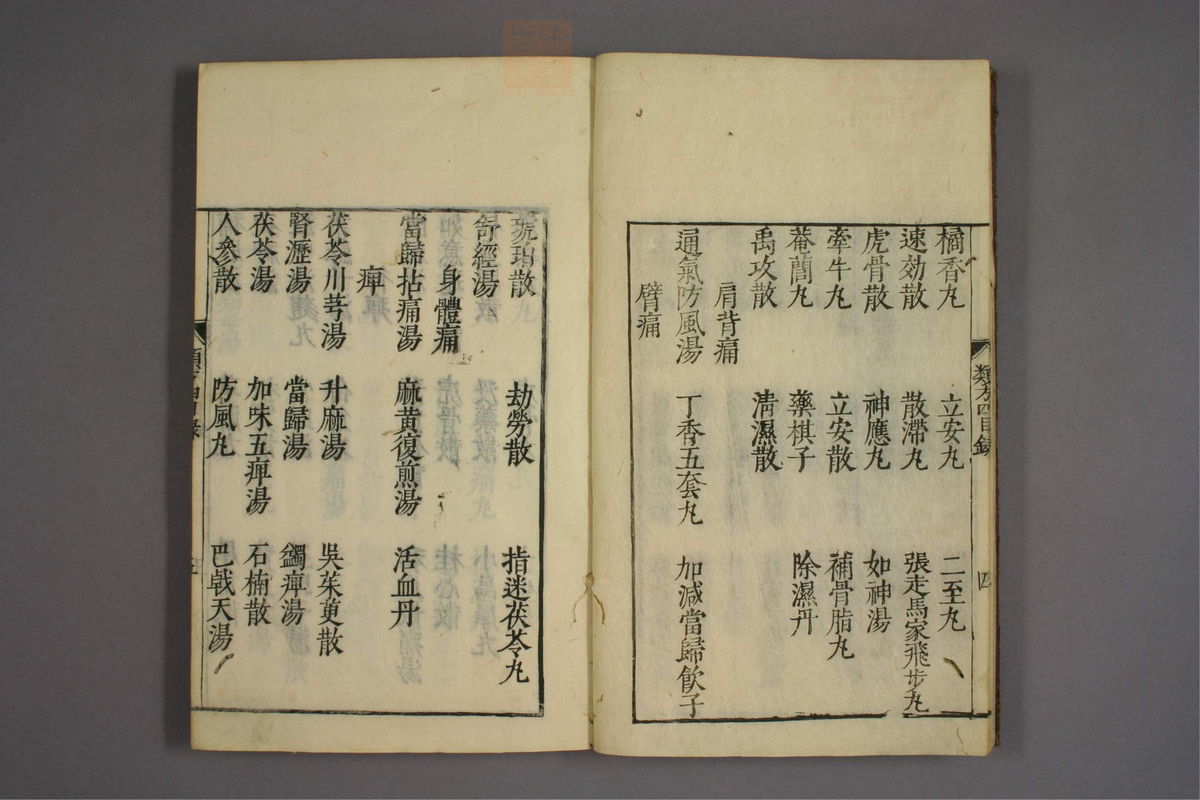 橘香丸 立安丸 二至丸
速効散 散滯丸 張走馬家飛步丸
虎骨散 神應丸 如神湯
牽牛丸 立安散 補骨脂丸
菴䕡丸 藥棋子 除濕丹
禹攻散 清濕散
肩背痛
通氣防風湯 丁香五套丸 加減當歸飲子
臂痛
類方四目錄 四
琥珀散 劫勞散 指迷茯苓丸
舒經湯
身體痛
當歸拈痛湯 麻黄復煎湯 活血丹
痺
茯苓川芎湯 升麻湯 吳茱萸散
腎瀝湯 當歸湯 蠲痺湯
茯苓湯 加味五痺湯 石楠散
人參散 防風丸 巴戟天湯